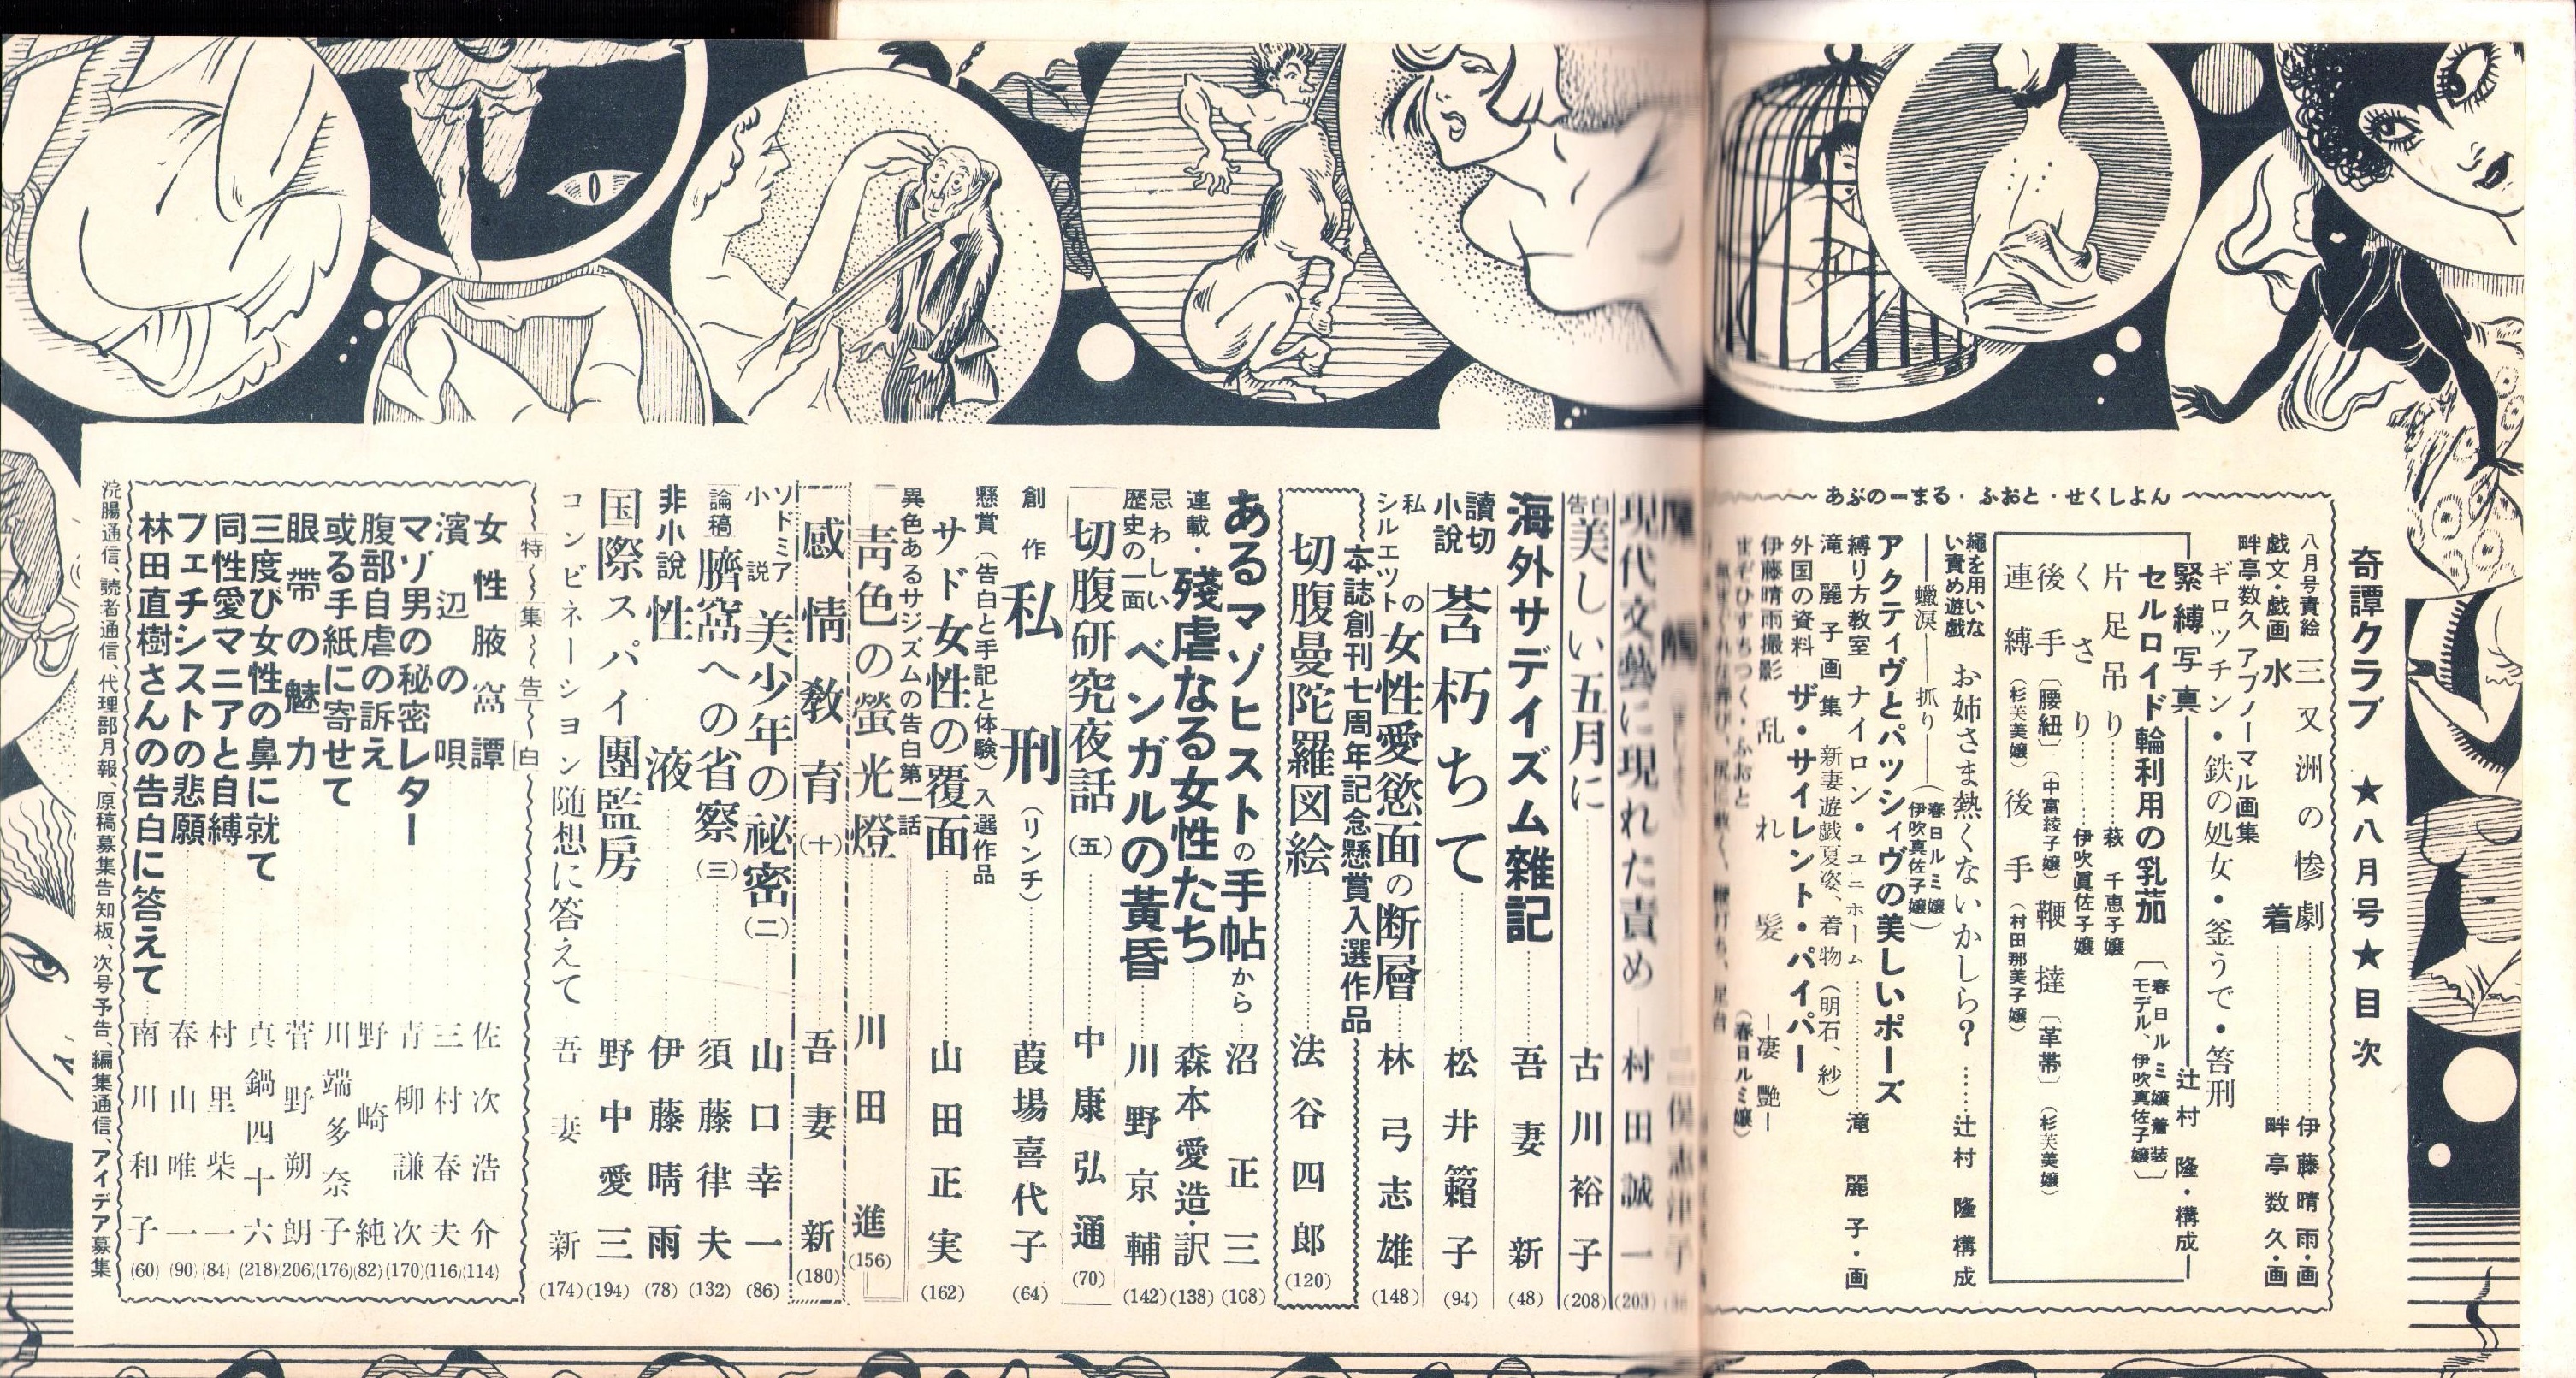 奇譚クラブ ★八月号★目次
あぶのーまる・ふおと・せくしよん
八月号責絵 三又洲の惨劇 伊藤晴雨・画
戯文・戯画 水着 畔亭数久・画
畔亭数久 アブノーマル画集
ギロッチン・鉄の処女・釜うで・笞刑
緊縛写真 辻村隆・構成
セルロイド輪利用の乳茄 〔春日ルミ嬢着装 モデル、伊吹真佐子嬢〕
片足吊り 萩千恵子嬢
くさり 伊吹眞佐子嬢
後手〔腰紐〕(中富綾子嬢) 鞭撻〔革帯〕(杉芙美嬢)
連縛(杉芙美嬢) 後手(村田那美子嬢)
繩を用いない責め遊戯 お姉さま熱くないかしら? 辻村隆構成
——蠟涙——抓り——(春日ルミ嬢 伊吹真佐子嬢)
アクティヴとパッシィヴの美しいポーズ
縛り方教室 ナイロン・ユニホーム 滝麗子・画
滝麗子画集 新妻遊戯夏姿、着物(明石、紗)
外国の資料 ザ・サイレント・パイパー
伊藤晴雨撮影 乱れ髪 ー凄艶ー
まぞひすちつく・ふおと (春日ルミ嬢)
現代文藝に現れた責め 村田誠一 (203)
告白 美しい五月に 古川裕子 (208)
海外サデイズム雑記 吾妻新 (48)
讀切小説 莟朽ちて 松井籟子 (94)
私のシルエット 女性愛慾面の断層 林弓志雄 (148)
本誌創刊七周年記念懸賞入選作品
切腹曼陀羅図絵 法谷四郎 (120)
あるマゾヒストの手帖から 沼正三 (108)
連載・残虐なる女性たち 森本愛造・訳 (138)
忌わしい歴史の一面 ベンガルの黄昏 川野京輔 (142)
切腹研究夜話(五) 中康弘通 (70)
創作 私刑(リンチ) 葭場喜代子 (64)
懸賞(告白と手記と体験)入選作品
サド女性の覆面 山田正実 (162)
異色あるサジズムの告白第一話
青色の螢光燈 川田進 (156)
感情教育(十) 吾妻新 (180)
ソドミア小説 美少年の秘密(二) 山口幸一 (86)
論稿 臍窩への省察(三) 須藤律夫 (132)
非小説 性液 伊藤晴雨 (78)
国際スパイ團監房 野中愛三 (194)
コンビネーション随想に答えて 吾妻新 (174)
特集告白
女性腋窩譚 佐次浩介 (114)
濱辺の唄 三村春夫 (116)
マゾ男の秘密レター 青柳謙次 (170)
腹部自虐の訴え 野崎純 (82)
或る手紙に寄せて 川端多奈子 (176)
眼帯の魅力 菅野朔朗 (206)
三度び女性の鼻に就て 真鍋四十六 (218)
同性愛マニアと自縛 村里柴一 (84)
フェチシストの悲願 春山唯一 (90)
林田直樹さんの告白に答えて 南川和子 (60)
浣腸通信、読者通信、代理部月報 原稿募集告知板、次号予告、編集通信、アイデア募集